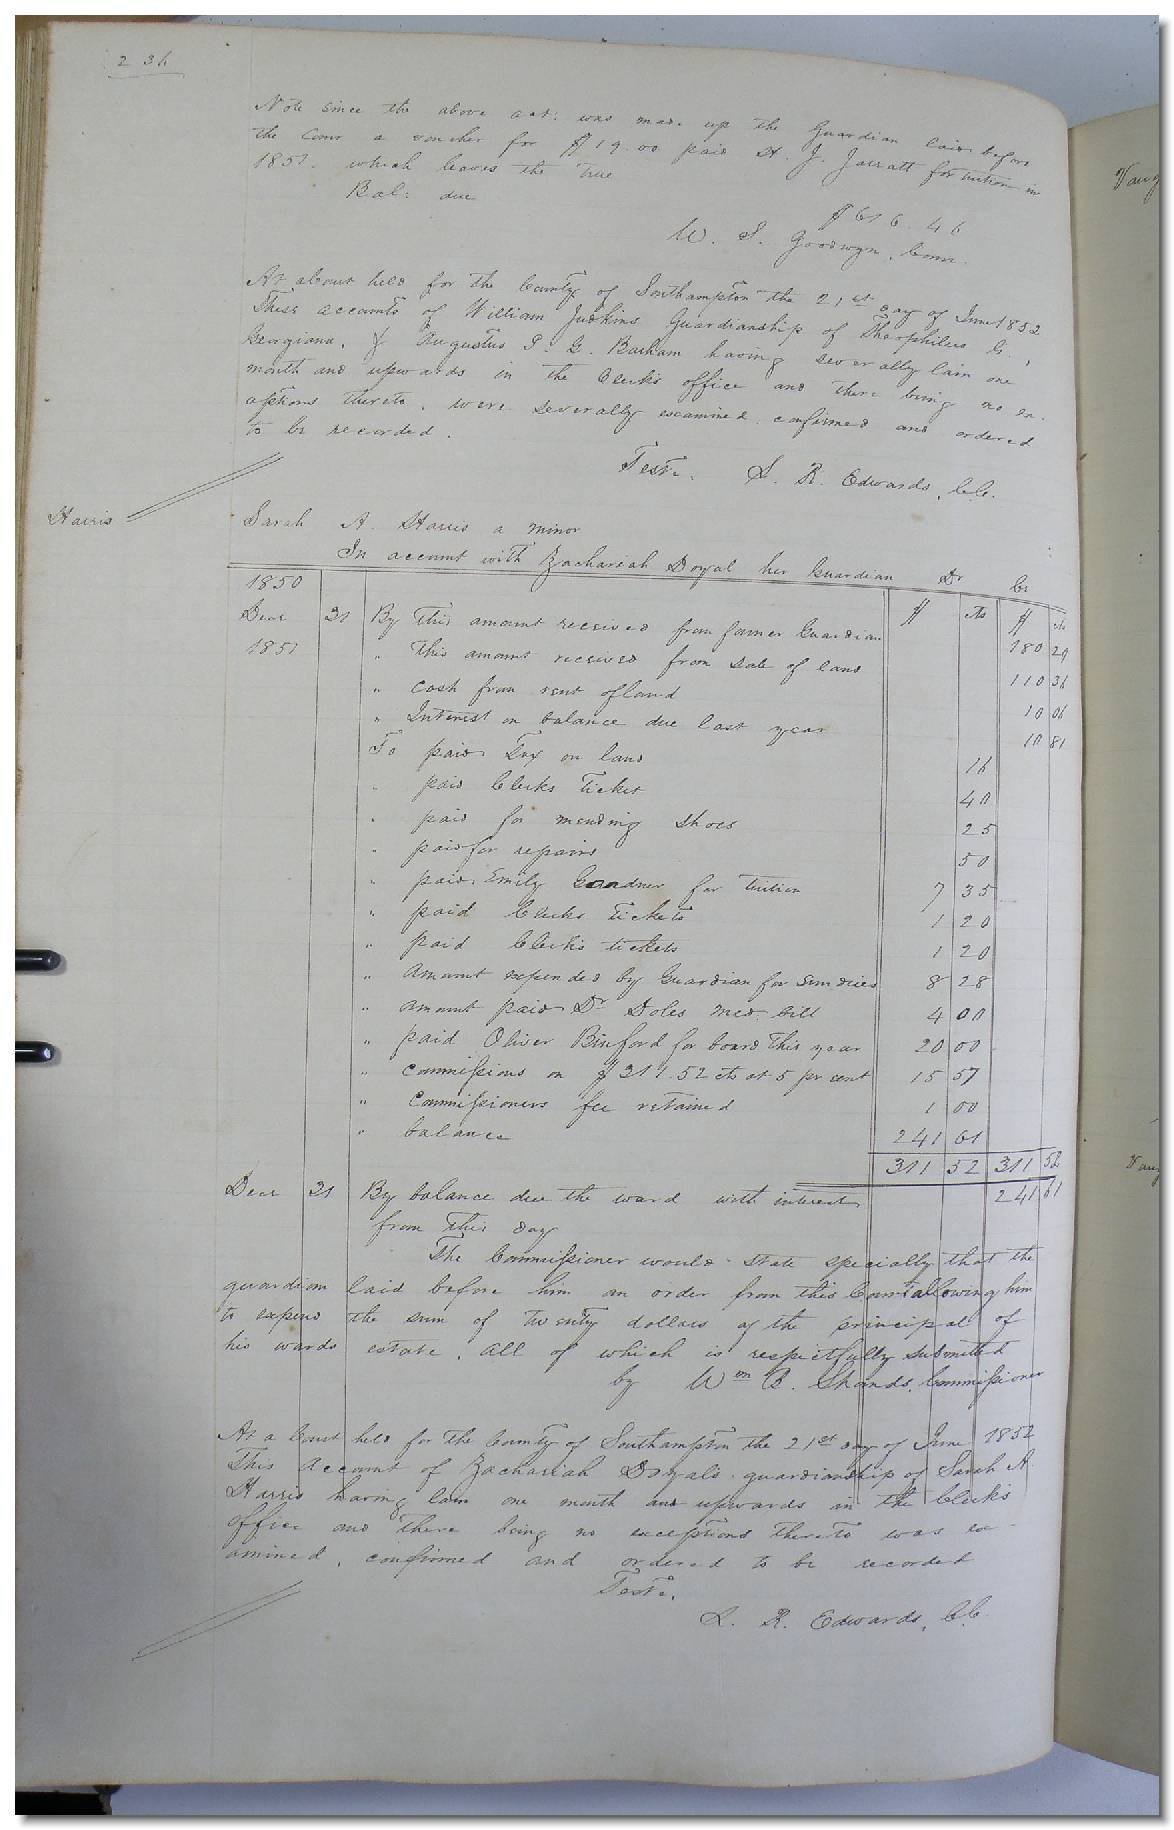 236
Note since the above act: was made up the Guardian laid before
the Comr a voucher for $19.00 paid H. J. Jarratt for tuition in
1851. which leaves the true
Bal: due
$616.46
W. S. Goodwyn, Comr.
At a Court held for the County of Southampton the 21st day of June 1852
These accounts of William Judkins Guardianship of Theophilus G.,
Georgiana, & Augustus P. G. Barham having severally lain one
month and upwards in the Clerk's office and there being no ex-
ceptions thereto, were severally examined confirmed and ordered
to be recorded.
Teste. L. R. Edwards, C.C.
Harris
Sarah A. Harris a minor
In account with Zachariah Doyal her Guardian Dr Cr
1850 $ cts $ cts
Decr 31 By This amount received from former Guardian 180 29
1851 " This amount received from sale of land 110 36
" cash from rent of land 10 06
" Interest on balance due last year 10 81
To paid Tax on land 16
" paid Clerks Ticket 40
" paid for mending shoes 25
" paid for repairs 50
" paid Emily Goodner for Tuition 7 35
" paid Clerks Tickets 1 20
" paid Clerks tickets 1 20
" Amount expended by Guardian for Sundries 8 28
" amount paid Dr Doles med. bill 4 00
" paid Oliver Binford for board this year 20 00
" Commissions on $311.52 cts at 5 per cent 15 57
" Commissioners fee retained 1 00
" balance 241 61
311 52 311 52
Decr 31 By balance due the ward with interest 241 61
from this day
The Commissioner would state specially that the
guardian laid before him an order from this Court allowing him
to expend the sum of Twenty dollars of the principal of
his wards estate. All of which is respectfully submitted
by Wm B. Shands, Commissioner
At a Court held for the County of Southampton the 21st day of June 1852
This Account of Zachariah Doyal's guardianship of Sarah A.
Harris having lain one month and upwards in the Clerk's
office and there being no exceptions thereto was ex-
amined, confirmed and ordered to be recorded
Teste.
L. R. Edwards, C.C.
Vaug
Vaug